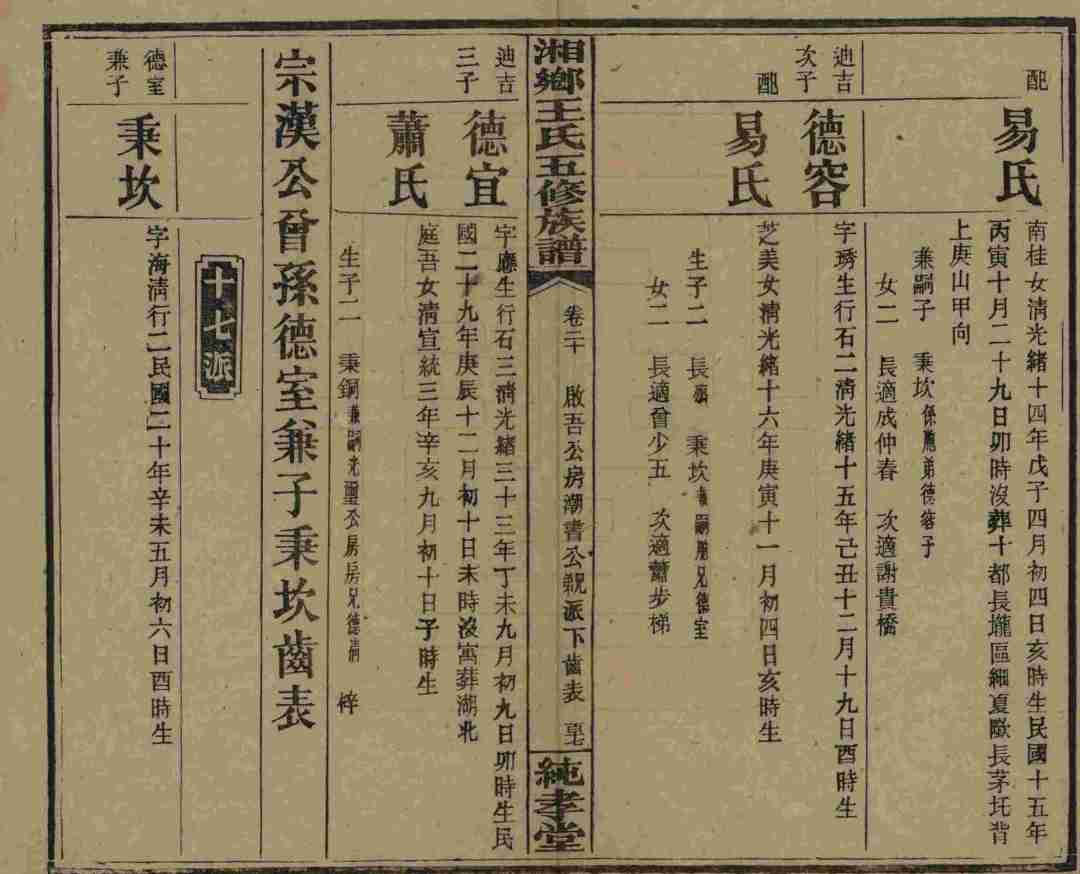 配
易氏
南桂女清光緒十四年戊子四月初四日亥時生民國十五年
丙寅十月二十九日卯時沒葬十都長壠區細夏歐長茅圫背
上庚山甲向
兼嗣子 秉坎係胞弟德容子
女二 長適成仲春 次適謝貴橋
迪吉
次子
德容
字琇生行石二清光緒十五年己丑十二月十九日酉時生
配
易氏
芝美女清光緒十六年庚寅十一月初四日亥時生
生子二 長殤 秉坎兼嗣胞兄德室
女二 長適曾少五 次適蕭步梯
湘鄉王氏五修族譜
卷二十 啟吾公房潮書公觀派下齒表
純孝堂
迪吉
三子
德宜
字應生行石三清光緒三十三年丁未九月初九日卯時生民
國二十九年庚辰十二月初十日未時沒寓葬湖北
蕭氏
庭吾女清宣統三年辛亥九月初十日子時生
生子二 秉銅兼嗣光璽公房房兄德 梓
宗漢公曾孫德室兼子秉坎齒表
十七派
德室
兼子
秉坎
字海清行二民國二十年辛未五月初六日酉時生